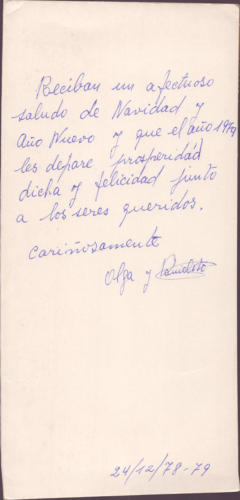 Reciban un afectuoso
saludo de Navidad y
Año Nuevo y que el año 1979
les depare prosperidad
dicha y felicidad junto
a los seres queridos.
Cariñosamente
Olga y
24/12/78-79